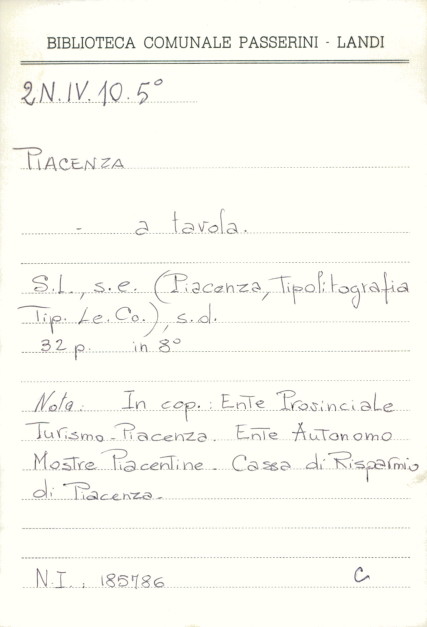 BIBLIOTECA COMUNALE PASSERINI - LANDI
2N.IV.10.5°
PIACENZA
- a tavola.
S.l., s.e. (Piacenza, Tipolitografia
Tip. Le.Co.), s.d.
32 p. in 8°
Nota: In cop.: Ente Provinciale
Turismo-Piacenza. Ente Autonomo
Mostre Piacentine. Cassa di Risparmio
di Piacenza.
N.I.: 185786 C